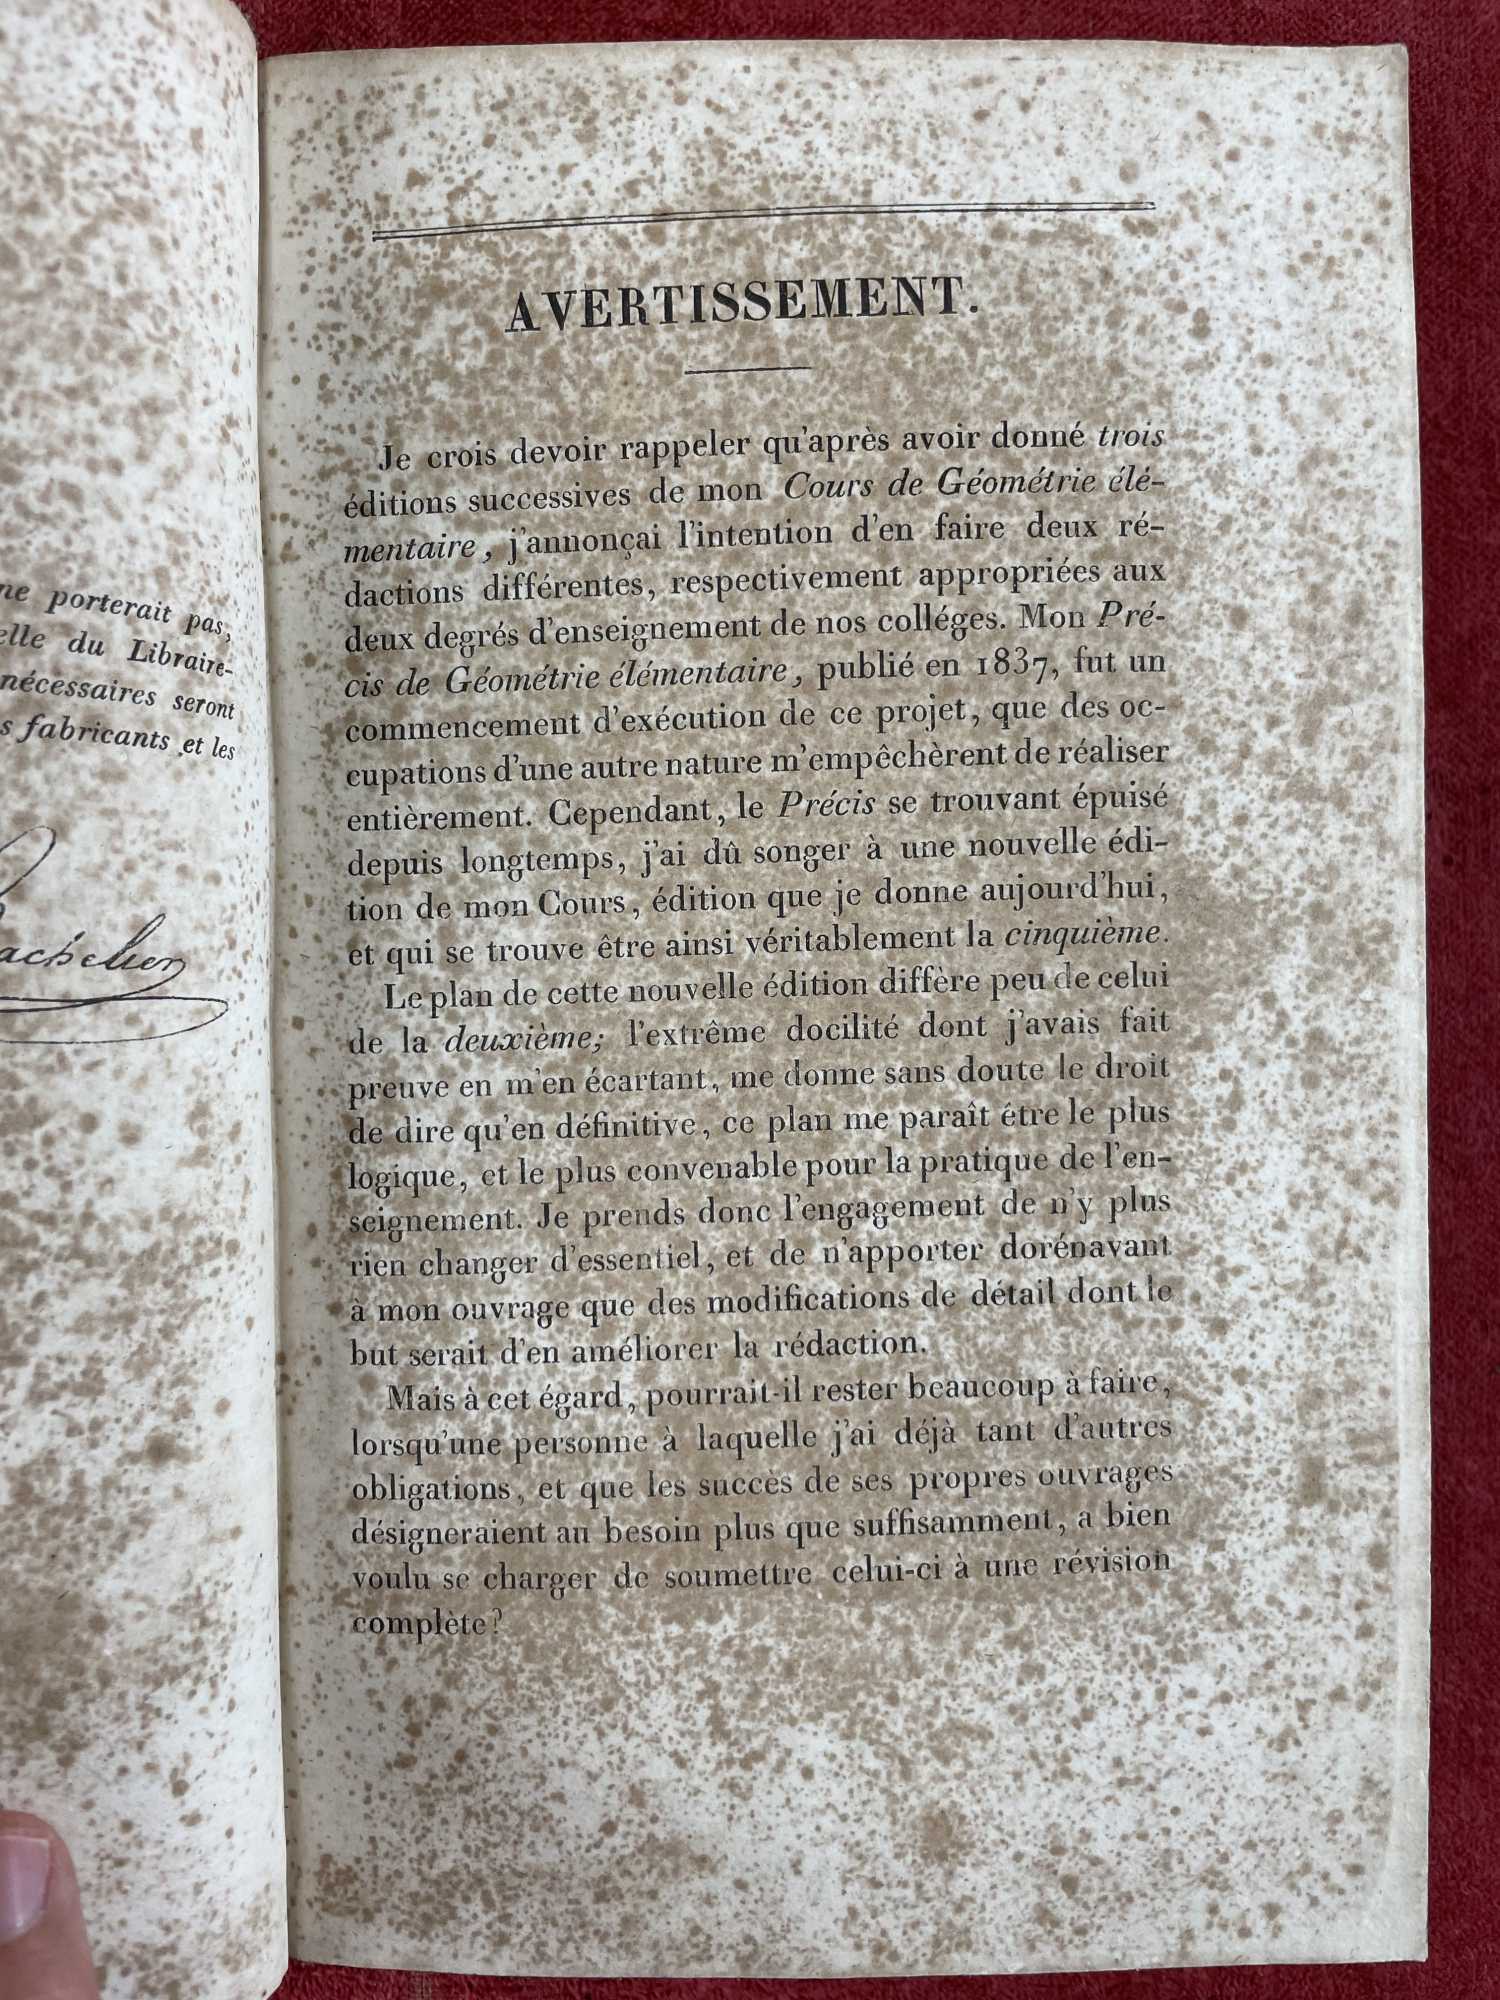 ne porterait pas,
elle du Libraire-
nécessaires seront
s fabricants et les
Bachelier
AVERTISSEMENT.
Je crois devoir rappeler qu'après avoir donné trois
éditions successives de mon Cours de Géométrie élé-
mentaire, j'annonçai l'intention d'en faire deux ré-
dactions différentes, respectivement appropriées aux
deux degrés d'enseignement de nos colléges. Mon Pré-
cis de Géométrie élémentaire, publié en 1837, fut un
commencement d'exécution de ce projet, que des oc-
cupations d'une autre nature m'empêchèrent de réaliser
entièrement. Cependant, le Précis se trouvant épuisé
depuis longtemps, j'ai dû songer à une nouvelle édi-
tion de mon Cours, édition que je donne aujourd'hui,
et qui se trouve être ainsi véritablement la cinquième.
Le plan de cette nouvelle édition diffère peu de celui
de la deuxième; l'extrême docilité dont j'avais fait
preuve en m'en écartant, me donne sans doute le droit
de dire qu'en définitive, ce plan me paraît être le plus
logique, et le plus convenable pour la pratique de l'en-
seignement. Je prends donc l'engagement de n'y plus
rien changer d'essentiel, et de n'apporter dorénavant
à mon ouvrage que des modifications de détail dont le
but serait d'en améliorer la rédaction.
Mais à cet égard, pourrait-il rester beaucoup à faire,
lorsqu'une personne à laquelle j'ai déjà tant d'autres
obligations, et que les succès de ses propres ouvrages
désigneraient au besoin plus que suffisamment, a bien
voulu se charger de soumettre celui-ci à une révision
complète?